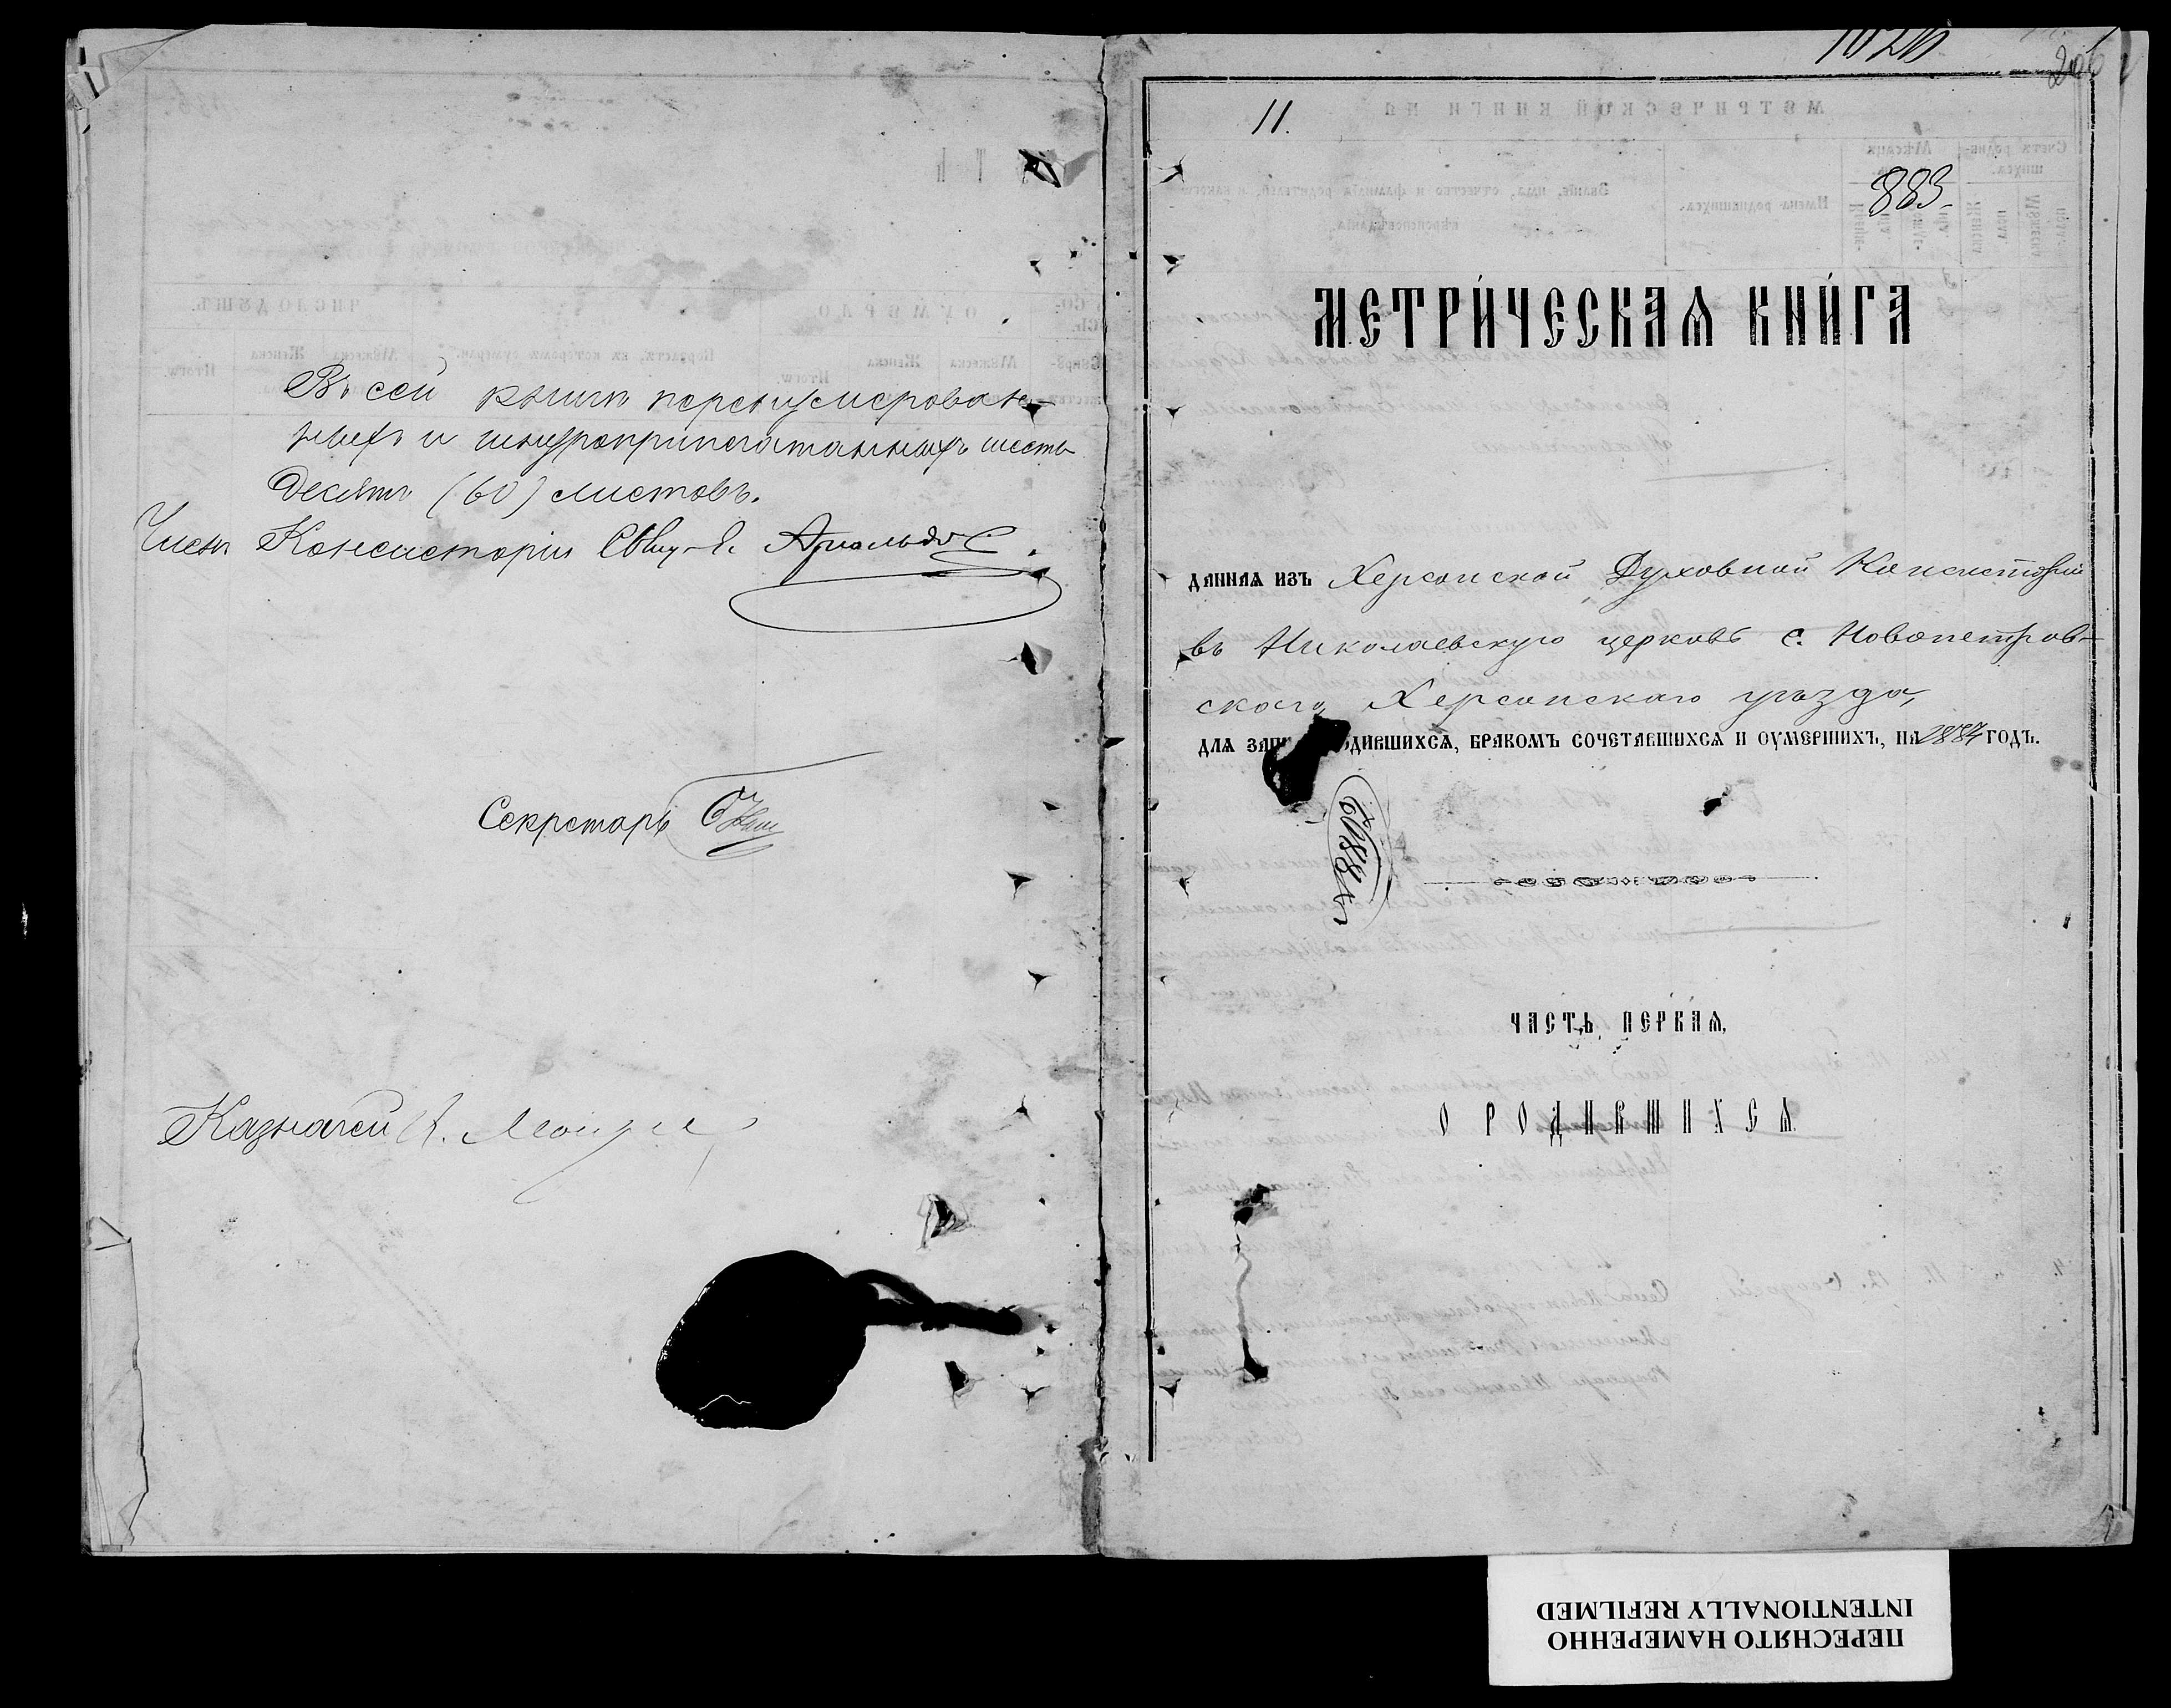 Въ сей книгѣ перенумерован-
ныхъ и шнуроприпечатанныхъ шесть
десятъ (60) листовъ.
Членъ Консисторіи Свщ-к. Арнольдов
Секретарь
Казначей
206
11.
883
МЕТРИ́ЧЕСКАѦ КНИ́ГА
ДАННАѦ ИЗЪ Херсонской Духовной Консисторіи
въ Николаевскую церковь с. Новопетров-
скаго Херсонскаго уѣзда,
ДЛѦ ЗАПИ ОДИВШИХСѦ, БРАКОМЪ СОЧЕТАВШИХСѦ И ОУМЕРШИХЪ, НА 1884 ГОДЪ.
ЧАСТЬ ПЕРВАѦ,
О РОДИВШИХСѦ
ПЕРЕСНЯТО НАМЕРЕННО
INTENTIONALLY REFILMED